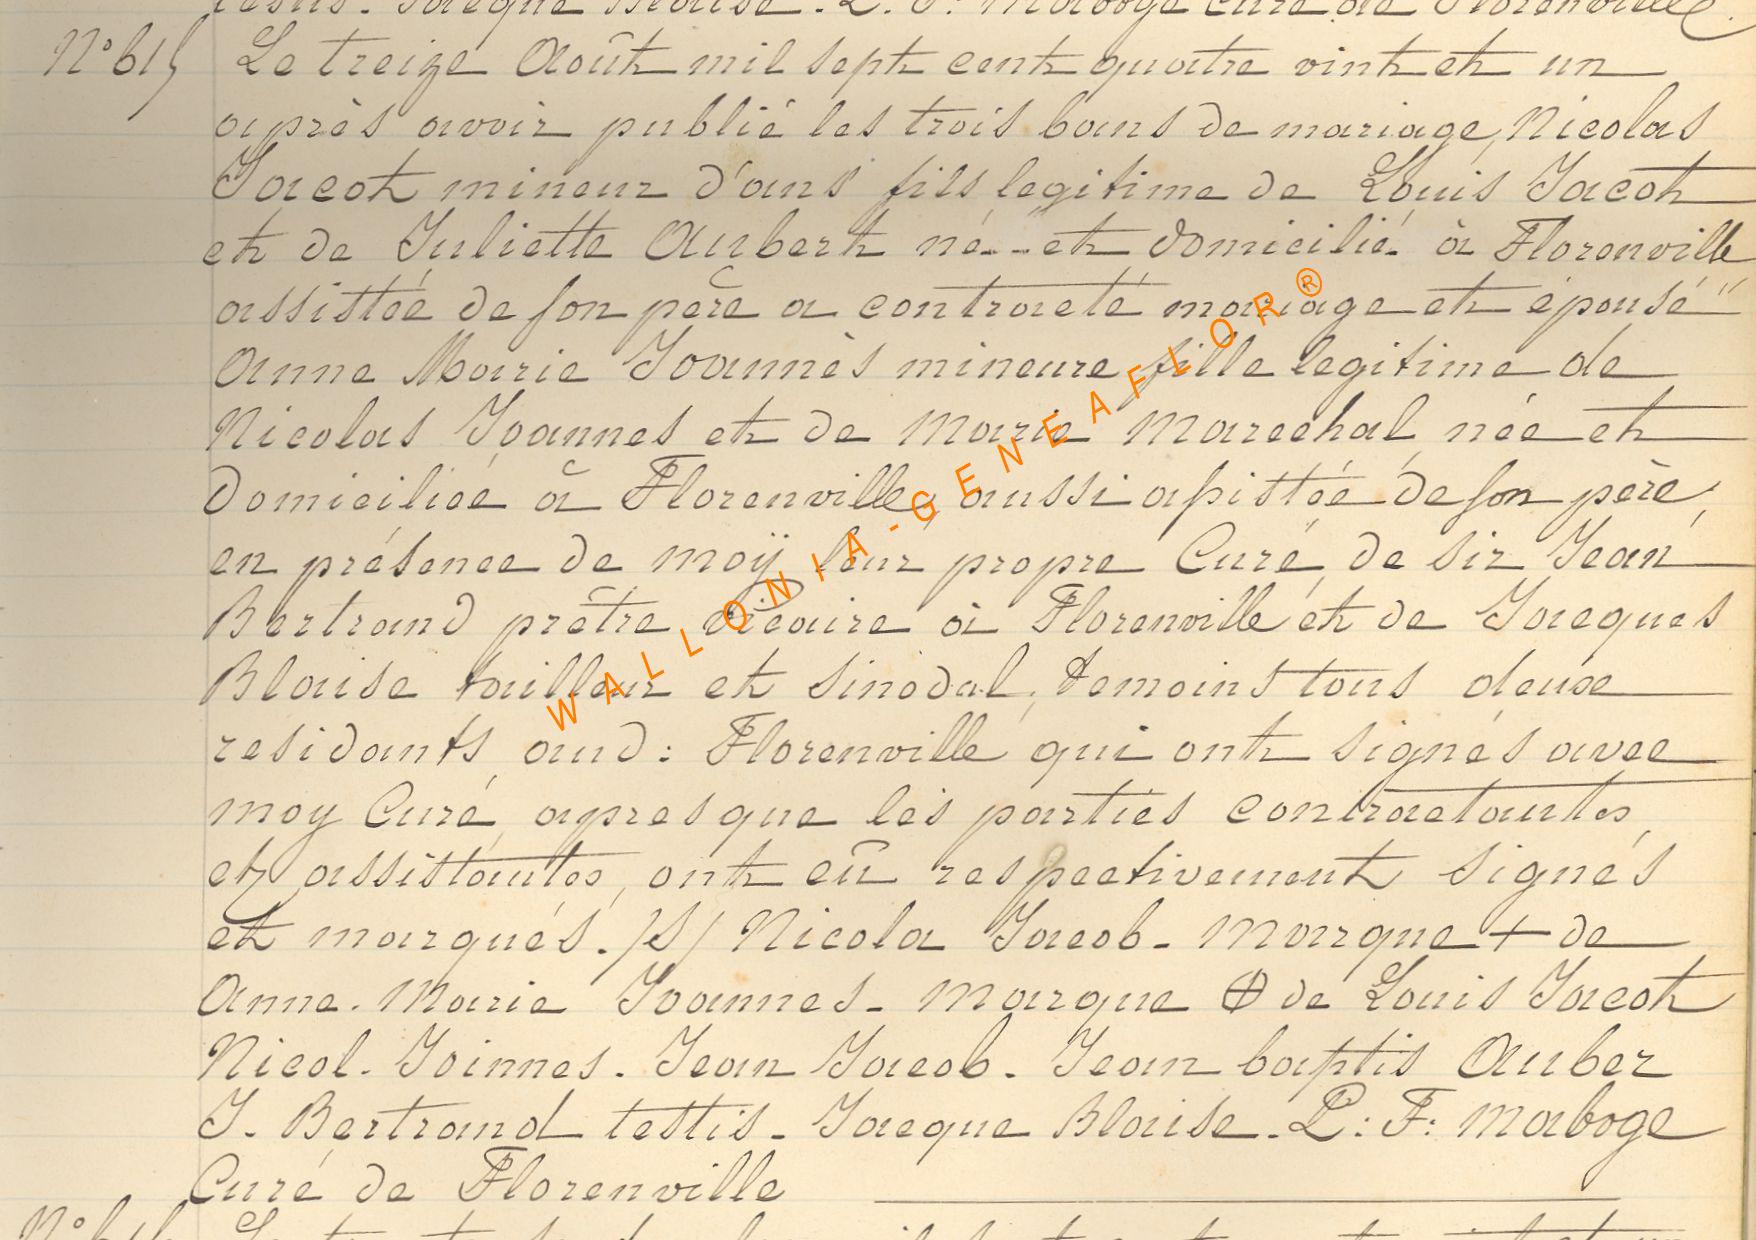 testis. Jacque Blaise. L. F. Maboge curé de Florenville.
N° 615 Le treize Août mil sept cent quatre vint et un
après avoir publié les trois bans de mariage, Nicolas
Jacot mineur d'ans fils legitime de Louis Jacot
et de Juliette Aubert né -- et domicilié à Florenville
assistée de son père a contracté mariage et épousé
Anne Marie Joannès mineure, fille legitime de
Nicolas Joannes et de Marie Marechal, née et
domiciliée à Florenville, aussi assistée de son père,
en présence de moÿ leur propre Curé, de sir Jean
Bertrand prêtre vicaire à Florenville et de Jacques
Blaise tailleur et sinodal, temoins tous deux
residants aud: Florenville qui ont signés avec
moy Curé, apres que les parties contractantes,
et assistantes, ont eû respectivement signés
et marqués. /S/ Nicola Jacob. Marque + de
Anne. Marie Joannes. Marque de Louis Jacot
Nicol. Joinnes. Jean Jacob. Jean baptis Auber
J. Bertrand testis. Jacque Blaise. L: F: Maboge
Curé de Florenville
WALLONIA-GENEAFLOR®